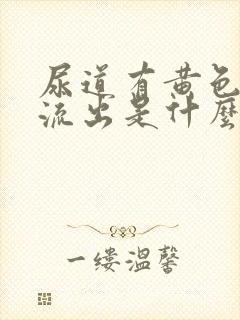 尿道有黄色
流出是什麼
一缕温馨